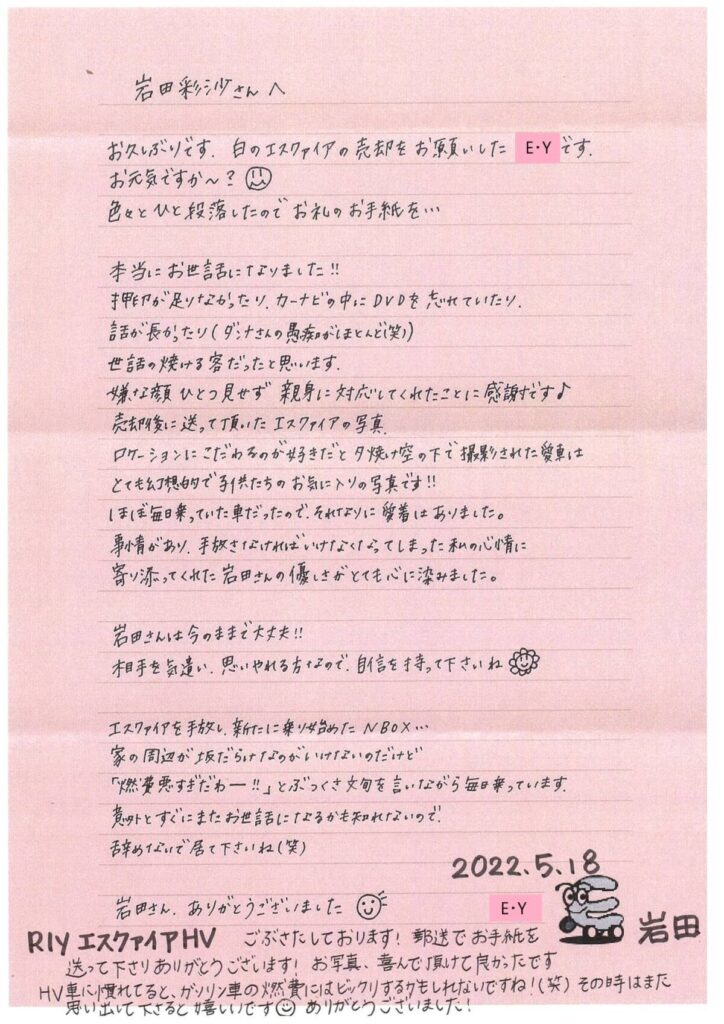 岩田彩沙さんへ
お久しぶりです。白のエスクァイアの売却をお願いした E・Y です。
お元気ですか〜?
色々とひと段落したのでお礼のお手紙を…
本当にお世話になりました!!
押印が足りなかったり、カーナビの中にDVDを忘れていたり、
話が長かったり(ダンナさんの愚痴がほとんど(笑))
世話の焼ける客だったと思います。
嫌な顔ひとつ見せず親身に対応してくれたことに感謝です♪
売却後に送って頂いたエスクァイアの写真。
ロケーションにこだわるのが好きだと夕焼け空の下で撮影された愛車は
とても幻想的で子供たちのお気に入りの写真です!!
ほぼ毎日乗っていた車だったので、それなりに愛着はありました。
事情があり、手放さなければいけなくなってしまった私の心情に
寄り添ってくれた岩田さんの優しさがとても心に染みました。
岩田さんは今のままで大丈夫!!
相手を気遣い、思いやれる方なので、自信を持って下さいね
エスクァイアを手放し、新たに乗り始めたNBOX…
家の周辺が坂だらけなのがいけないのだけど
「燃費悪すぎだわー!!」とぶつくさ文句を言いながら毎日乗っています。
意外とすぐにまたお世話になるかも知れないので、
辞めないで居て下さいね(笑)
2022.5.18
岩田さん、ありがとうございました
E・Y
岩田
RIYエスクァイアHV ごぶさたしております!郵送でお手紙を
送って下さりありがとうございます!お写真、喜んで頂けて良かったです
HV車に慣れてると、ガソリン車の燃費にはビックリするかもしれないですね!(笑)その時はまた
思い出して下さると嬉しいです ありがとうございました!